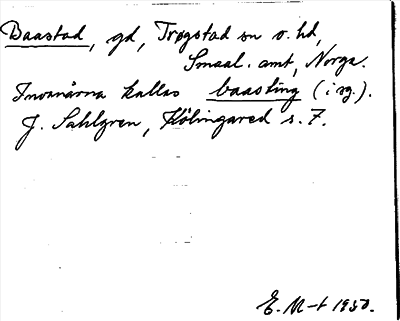 Baastad, gd, Trøgstad sn o. hd,
Smaal. amt, Norge.
Invånarna kallas baasting (i sg.).
J. Sahlgren, Kölingared s. 7.
E. M-t 1950.